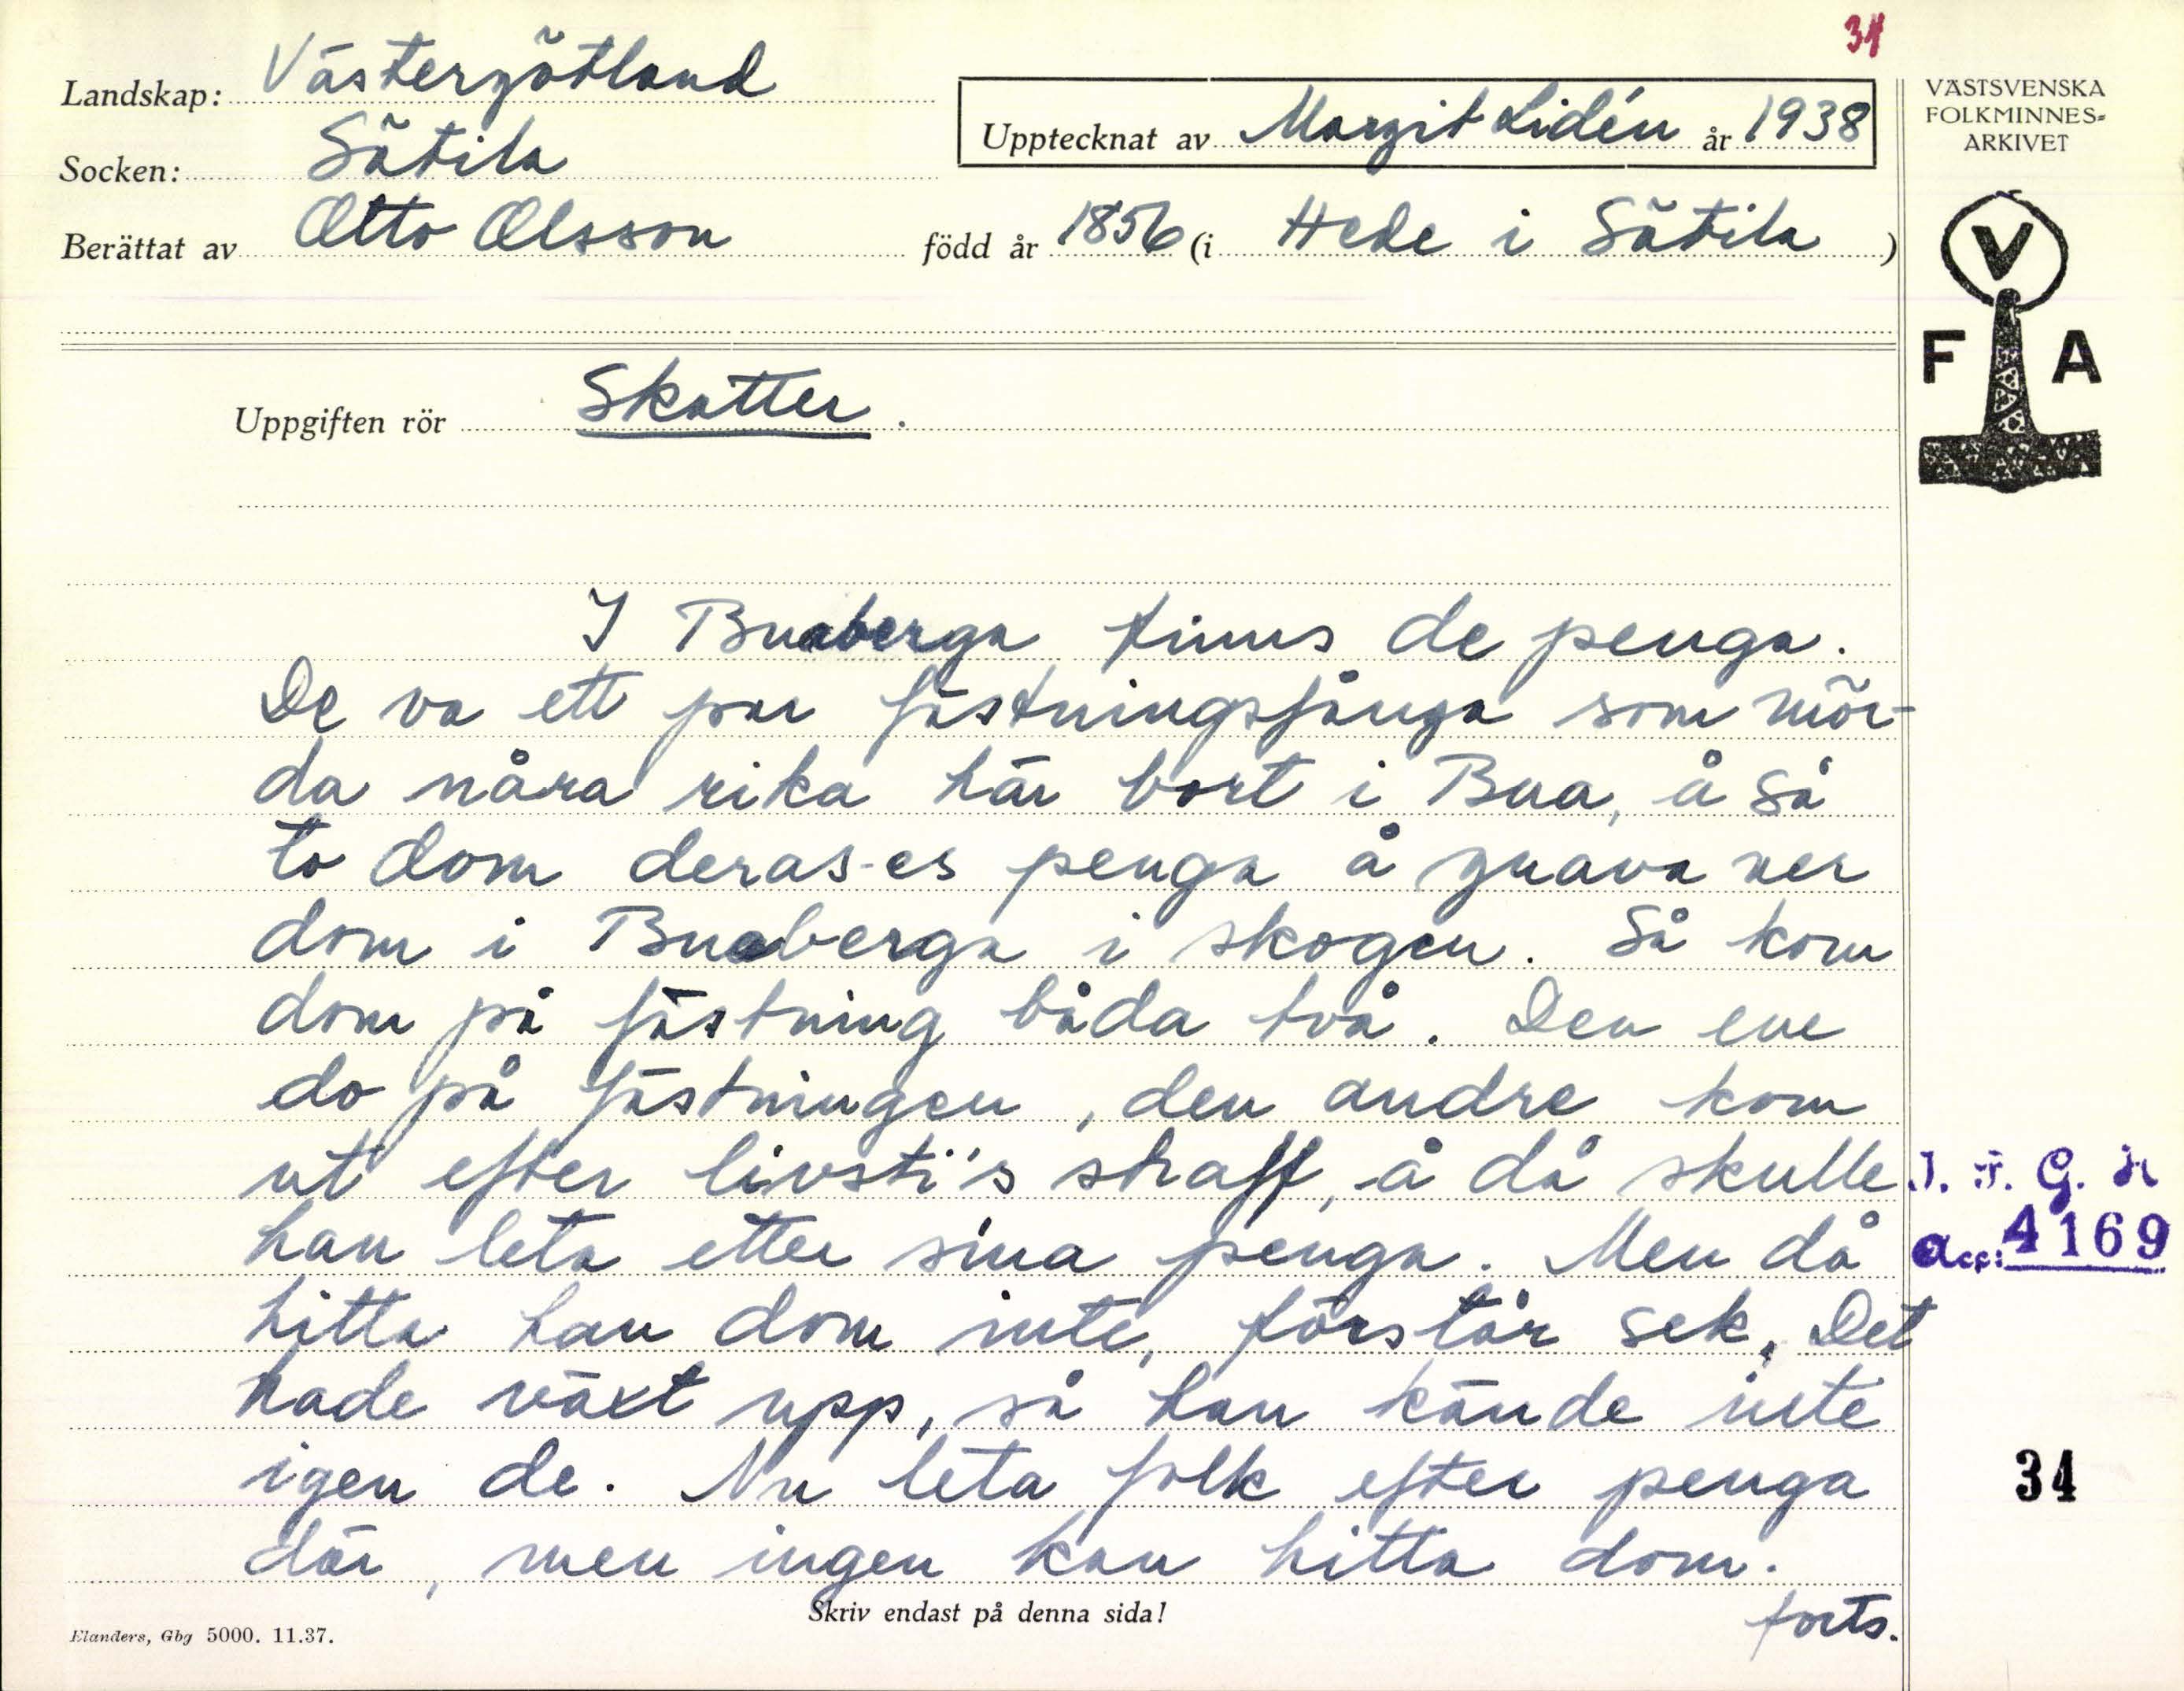 34
Landskap: Västergötland
Socken: Sätila
Berättat av Otto Olsson född år 1856 (i Hede i Sätila )
Upptecknat av Margit Lidén år 1938
VÄSTSVENSKA
FOLKMINNES-
ARKIVET
V
F A
Uppgiften rör Skatter.
I Buaberga finns de penga.
De va ett par fästningsfånga som mör-
da måra rika här bort i Bua, å så
to dom deras-es penga å gnava ner
dom i Buaberga i skogen. Så kom
dom på fästning båda två. Den ene
do på fästningen, den andre kom
ut efter livsti's straff, å då skulle
han leta etter sina penga. Men då
hitta han dom inte, förstår sek. Det
hade växt upp, så han kände inte
igen de. Nu leta folk efter penga
där, men ingen kan hitta dom.
forts.
Skriv endast på denna sida!
Elanders, Gbg 5000. 11.37.
I. F. G. H
Acc: 4169
34